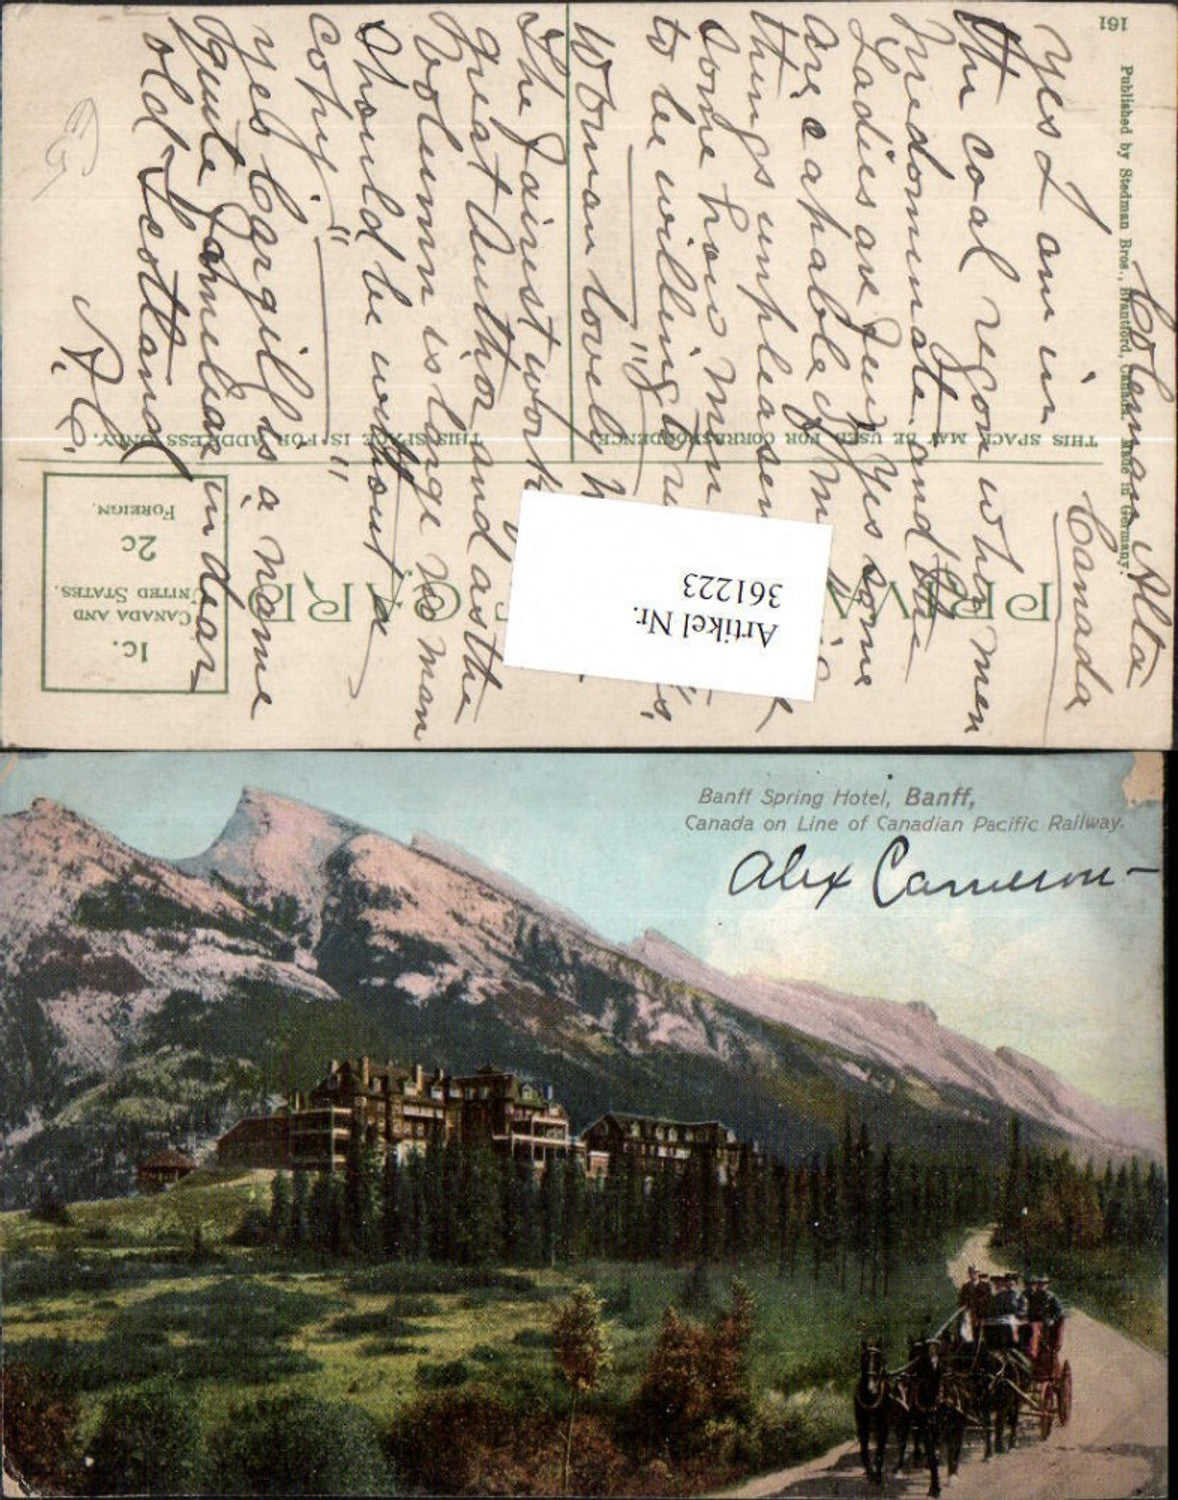 161
Published by Stedman Bros., Brantford, Canada. Made in Germany.
PRIVATE POST CARD
THIS SPACE MAY BE USED FOR CORRESPONDENCE
THIS SPACE IS FOR ADDRESS ONLY.
1c.
CANADA AND
UNITED STATES.
2c
FOREIGN.
Coleman Alta
Canada
Yes I am in
the coal region who men
predominate and the
Ladies are few. Yes some
are capable of
things unpleasent
some how men
to be willing to
Woman lovely
The fairest work
great Author and as the
Volumn is large no man
should be without a
copy"
Yes Cargill is a name
quite familear in dear
old Scotland
A. C.
Artikel Nr.
361223
Banff Spring Hotel, Banff,
Canada on Line of Canadian Pacific Railway.
Alex Cameron